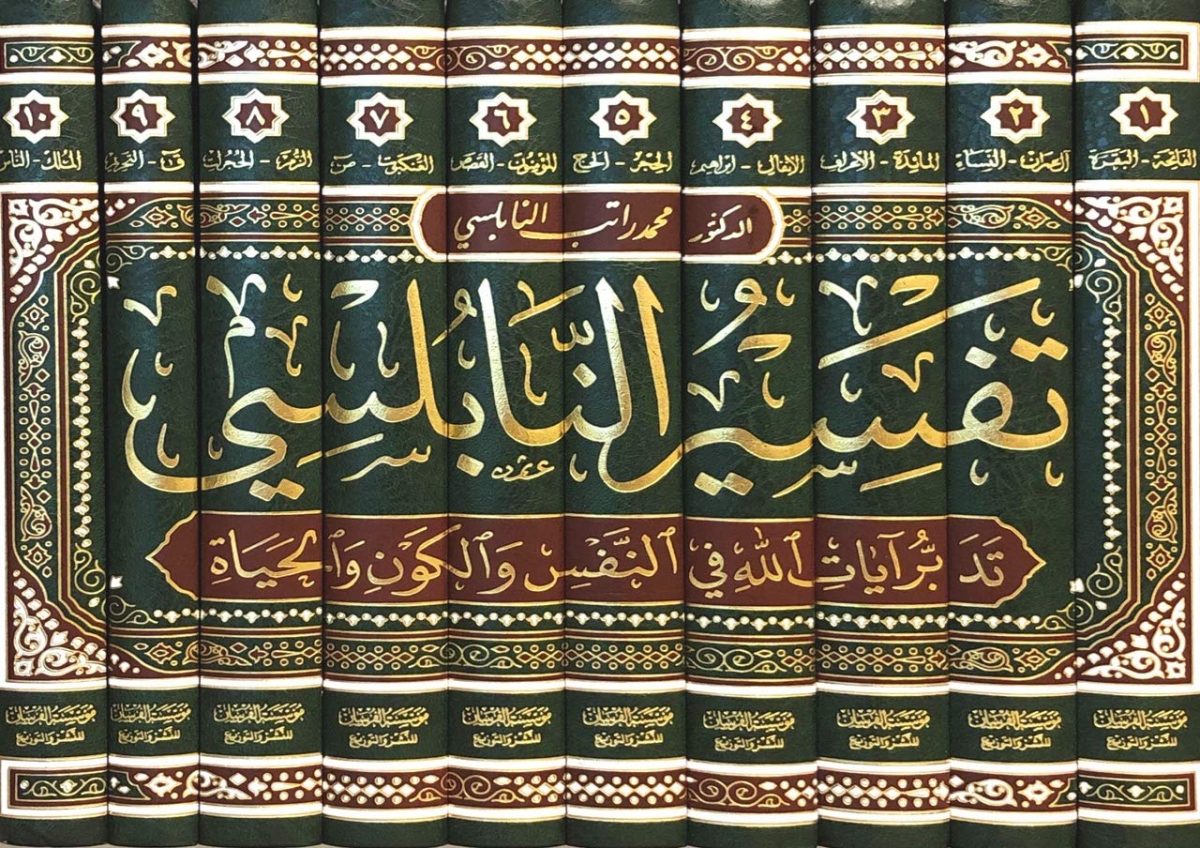 ١ ٢ ٣ ٤ ٥ ٦ ٧ ٨ ٩ ١٠
الفاتحة - البقرة
آل عمران - النساء
المائدة - الأعراف
الأنفال - إبراهيم
الحجر - الحج
المؤمنون - القصص
العنكبوت - ص
الزمر - الحجرات
ق - التحريم
الملك - الناس
الدكتور محمد راتب النابلسي
تَفسِيرُ النَّابُلسِي
تَدَبُّرُ آيَاتِ اللهِ فِي النَّفْسِ وَالكَوْنِ وَالحَيَاةِ
مؤسسة الفرسان مؤسسة الفرسان مؤسسة الفرسان مؤسسة الفرسان مؤسسة الفرسان مؤسسة الفرسان مؤسسة الفرسان مؤسسة الفرسان مؤسسة الفرسان مؤسسة الفرسان
للنشر والتوزيع للنشر والتوزيع للنشر والتوزيع للنشر والتوزيع للنشر والتوزيع للنشر والتوزيع للنشر والتوزيع للنشر والتوزيع للنشر والتوزيع للنشر والتوزيع